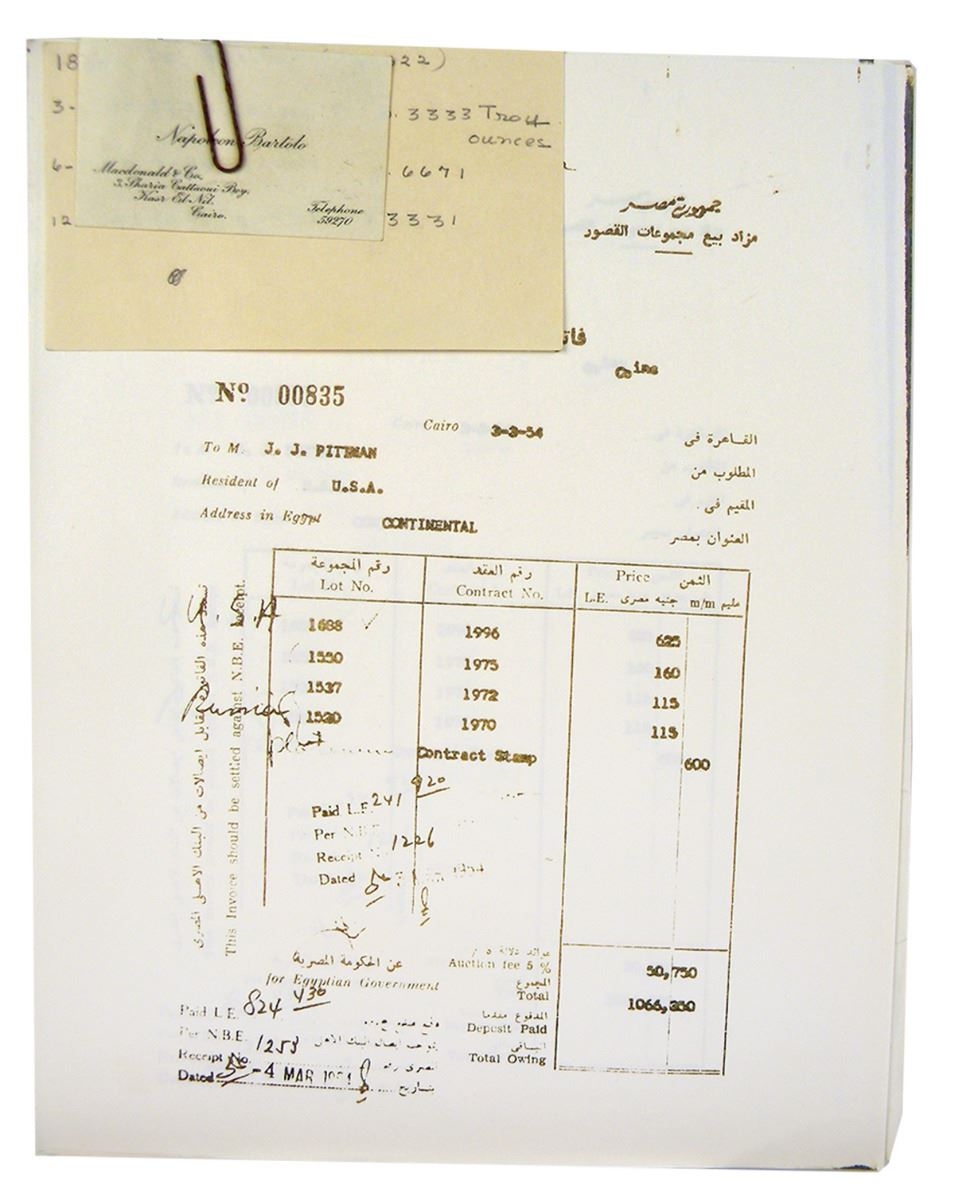 18 22)
3- . 3333 Troy
ounces
6- . 6671
12 3331
Napoleon Bartolo
Macdonald & Co.
3, Sharia Cattaoui Bey.
Kasr El-Nil.
Cairo.
Telephone
59270
جمهورية مصر
مزاد بيع مجموعات القصور
Coins
Nº 00835
Cairo 3-3-54 القاهرة فى
To M. J. J. PITTMAN المطلوب من
Resident of U.S.A. المقيم فى .
Address in Egypt CONTINENTAL العنوان بمصر
رقم المجموعة رقم العقد الثمن Price
Lot No. Contract No. L.E. جنيه مصرى مليم m/m
1688 1996 625
1550 1975 160
1537 1972 115
1520 1970 115
Russian
plat
Contract Stamp 600
Paid L.E. 241 920
Per N.B.E.
Receipt 1226
Dated
تسدد هذه الفاتورة مقابل ايصالات من البنك الاهلى المصرى
This Invoice should be settled against N.B.E. Receipt.
عن الحكومة المصرية
for Egyptian Government
Auction fee 5 % 50,750
المجموع
Total 1066,350
المدفوع مقدما
Deposit Paid
الباقى
Total Owing
Paid L.E. 824 430
Per N.B.E. 1253
Receipt No.
Dated -4 MAR 1954 بتاريخ